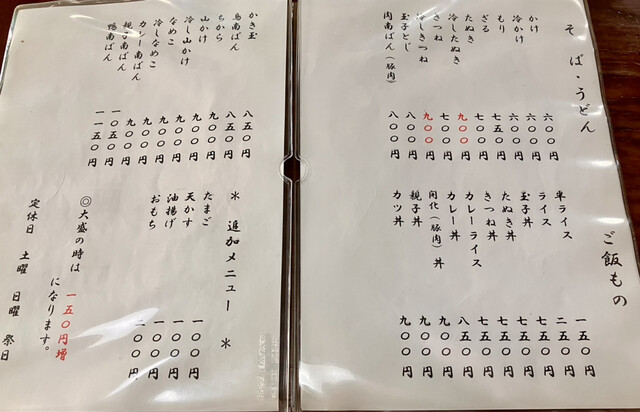 そば・うどん
かけ 六〇〇円
冷かけ 六〇〇円
もり 六〇〇円
ざる 七五〇円
たぬき 七〇〇円
冷したぬき 九〇〇円
きつね 七〇〇円
冷しきつね 九〇〇円
玉子とじ 八〇〇円
肉南ばん(豚肉) 八〇〇円
ご飯もの
半ライス 一五〇円
ライス 二五〇円
玉子丼 七五〇円
たぬき丼 七五〇円
きつね丼 七五〇円
カレーライス 七五〇円
カレー丼 八五〇円
開化(豚肉)丼 九〇〇円
親子丼 九〇〇円
カツ丼 九〇〇円
かき玉 八五〇円
鳥南ばん 八五〇円
ちから 九〇〇円
山かけ 九〇〇円
冷し山かけ 九〇〇円
なめこ 九〇〇円
冷しなめこ 九〇〇円
カレー南ばん 九〇〇円
親子南ばん 一〇五〇円
鴨南ばん 一一五〇円
* 追加メニュー *
たまご 一〇〇円
天かす 一〇〇円
油揚げ 一〇〇円
おもち 二〇〇円
◎大盛の時は 一五〇円増
になります。
定休日 土曜 日曜 祭日